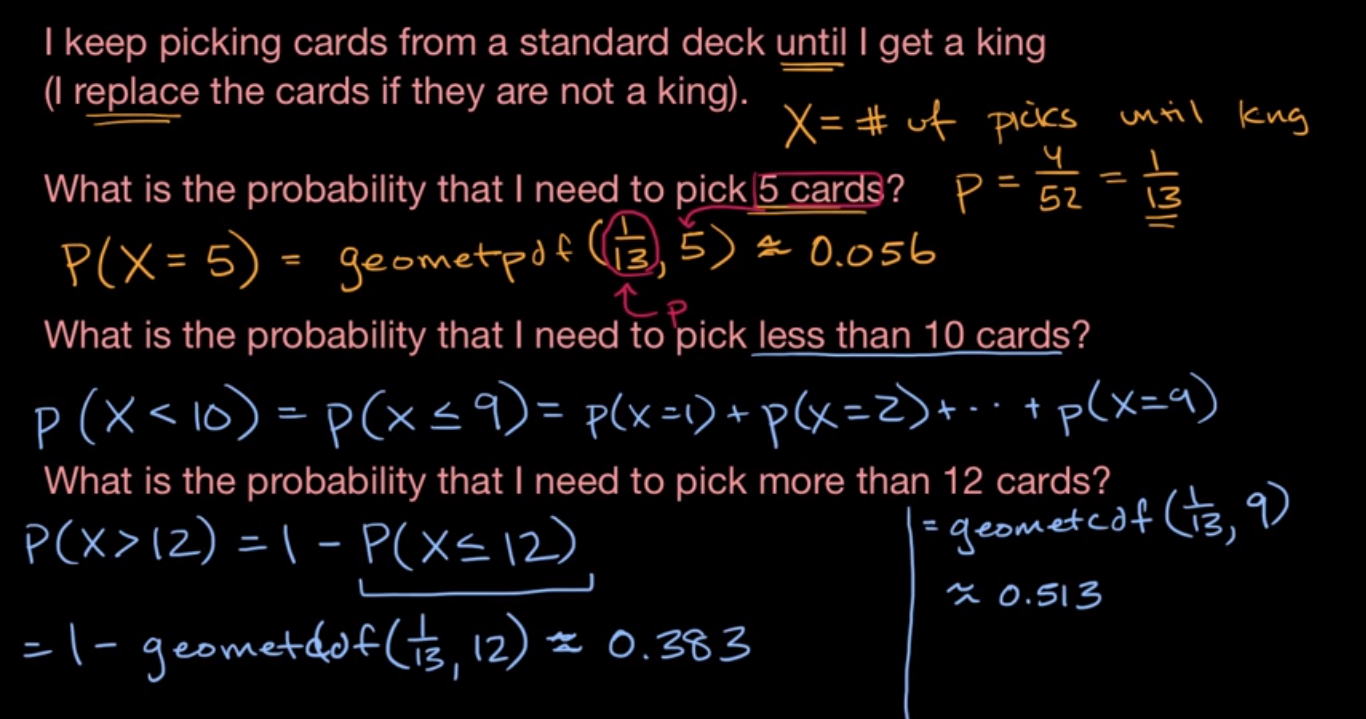 I keep picking cards from a standard deck until I get a king
(I replace the cards if they are not a king).
X = # of picks until kng
What is the probability that I need to pick 5 cards?
p = 4/52 = 1/13
P(X = 5) = geometpdf(1/13, 5) ≈ 0.056
p
What is the probability that I need to pick less than 10 cards?
P(X < 10) = P(X ≤ 9) = P(X=1) + P(X=2) + ··· + P(X=9)
What is the probability that I need to pick more than 12 cards?
= geometcdf(1/13, 9)
≈ 0.513
P(X > 12) = 1 - P(X ≤ 12)
= 1 - geometcdf(1/13, 12) ≈ 0.383